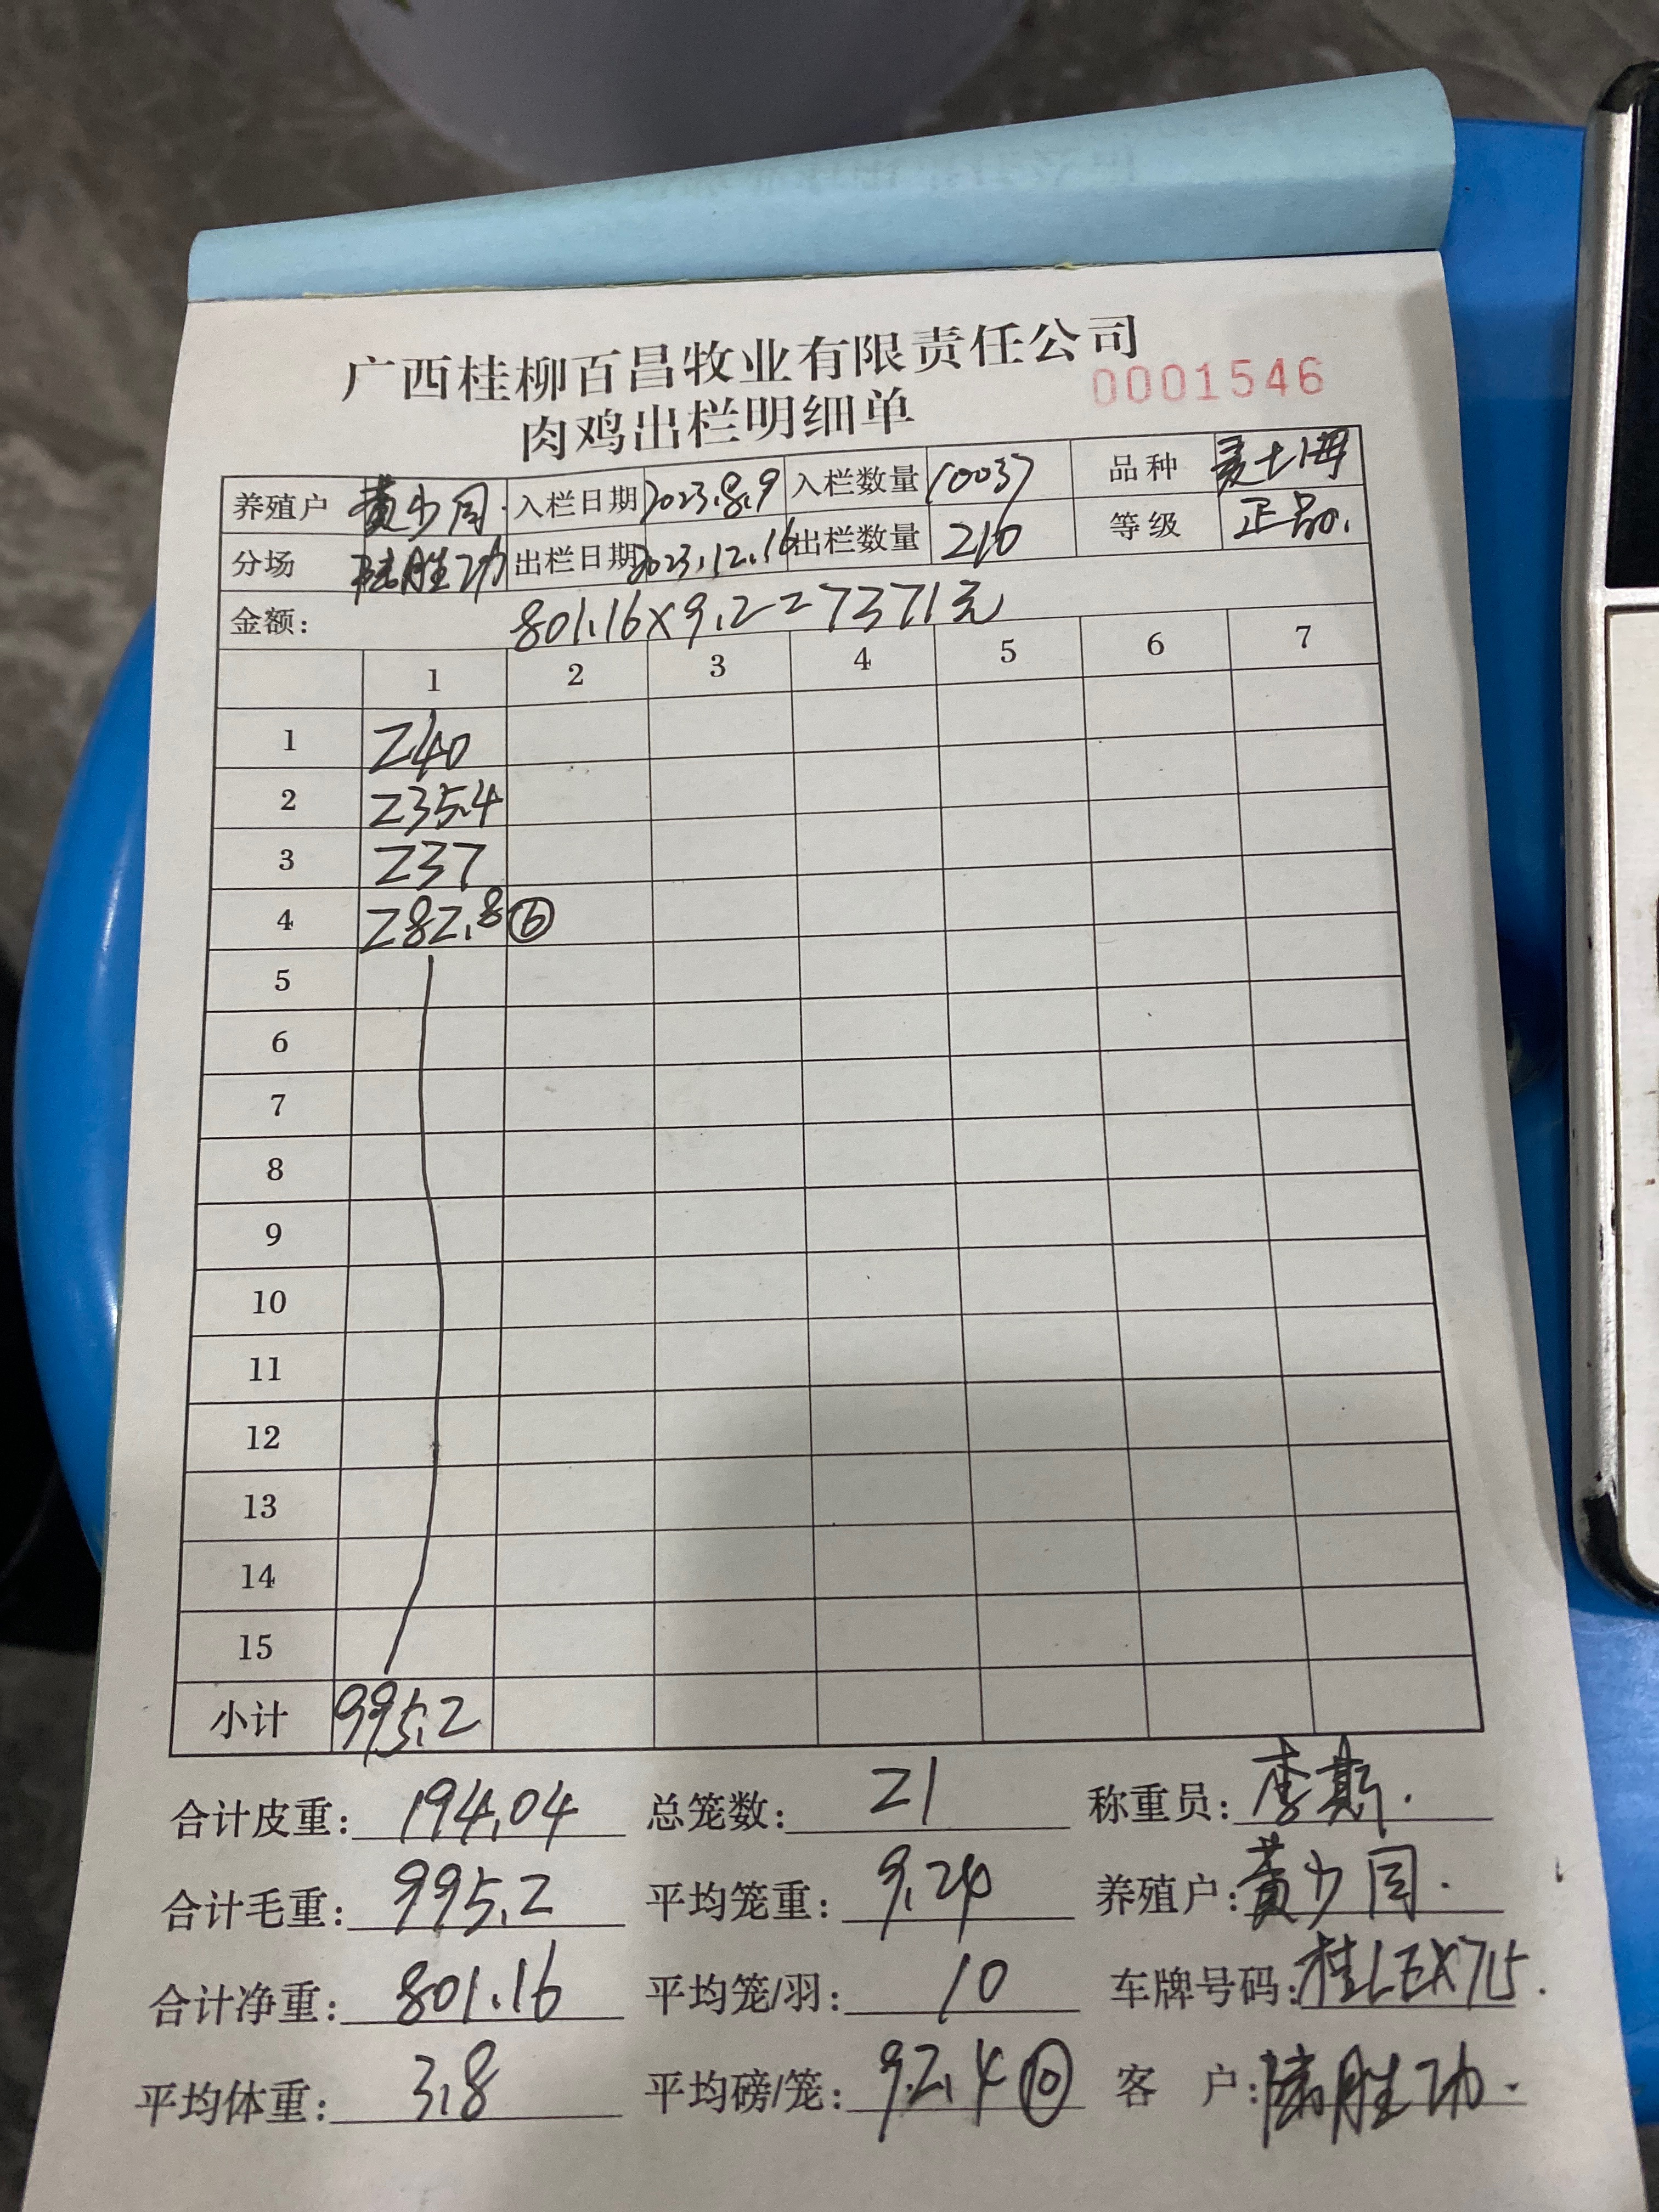 广西桂柳百昌牧业有限责任公司
0001546
肉鸡出栏明细单
养殖户 黄少周 入栏日期 2023.8.9 入栏数量 10037 品种
分场 陆胜功 出栏日期 2023.12.16 出栏数量 210 等级 正品
金额: 801.16×9.2=7371元
1 2 3 4 5 6 7
1 240
2 235.4
3 237
4 282.8 ⑥
5
6
7
8
9
10
11
12
13
14
15
小计 995.2
合计皮重: 194.04 总笼数: 21 称重员: 李斯.
合计毛重: 995.2 平均笼重: 9.24 养殖户: 黄少周.
合计净重: 801.16 平均笼/羽: 10 车牌号码:
平均体重: 3.8 平均磅/笼: 92.4 ⑩ 客 户: 陆胜功.